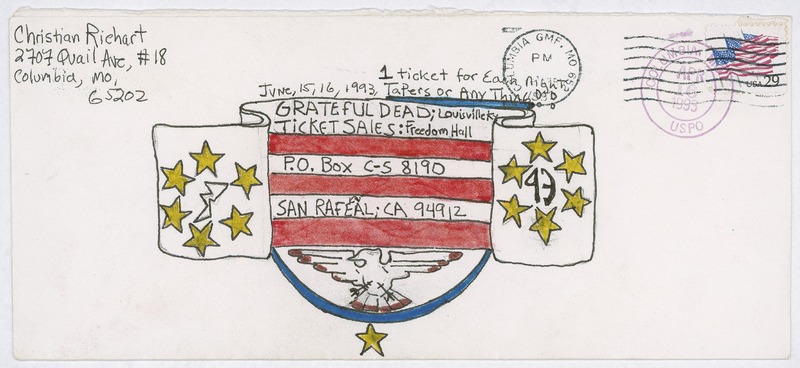 Christian Richart
2707 Quail Ave, #18
Columbia, Mo,
65202
1 ticket for Each Night
June, 15, 16, 1993, Tapers or Any Thing
GRATEFUL DEAD; Louisville Ky
TICKET SALES: Freedom Hall
P.O. Box C-S 8190
SAN RAFEAL; CA 94912
93
COLUMBIA GMF, MO 652
PM
COLUMBIA
APR
1993
USPO
USA 29